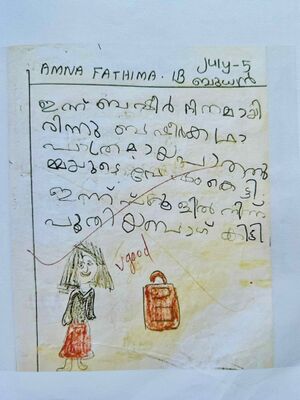 July-5
AMNA FATHIMA. 1B ബുധൻ
ഇന്ന് ബഷീർ ദിനമായി
രിന്നു ബഷീർകഥാ
പാത്രമായ പാത്തു
മ്മയുടെ വേഷം കെട്ടി
ഇന്ന് സ്കൂളിൽ നിന്ന്
പുതിയ ബാഗ് കിട്ടി
good